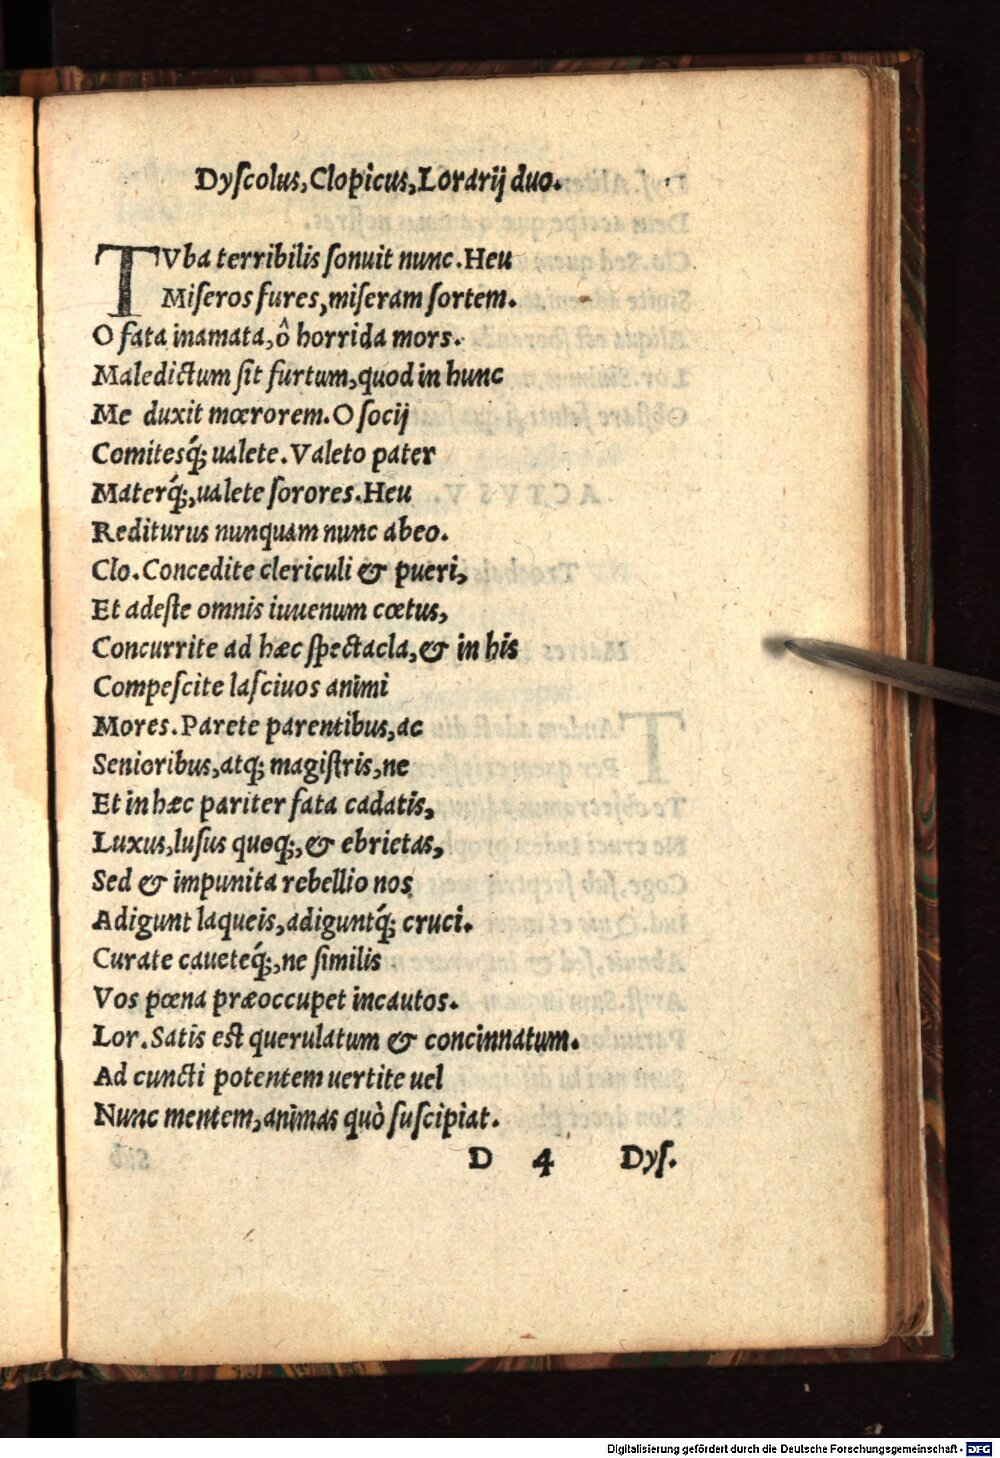 Dyſcolus, Clopicus, Lorarij duo.
TVba terribilis ſonuit nunc. Heu
Miſeros fures, miſeram ſortem.
O fata inamata, ô horrida mors.
Maledictum ſit furtum, quod in hunc
Me duxit mœrorem. O ſocij
Comitesq́; ualete. Valeto pater
Materq́;, ualete ſorores. Heu
Rediturus nunquam nunc abeo.
Clo. Concedite clericuli & pueri,
Et adeſte omnis iuuenum cœtus,
Concurrite ad hæc ſpectacla, & in his
Compeſcite laſciuos animi
Mores. Parete parentibus, ac
Senioribus, atq; magiſtris, ne
Et in hæc pariter fata cadatis,
Luxus, luſus quoq;, & ebrietas,
Sed & impunita rebellio nos
Adigunt laqueis, adiguntq́; cruci.
Curate caueteq́;, ne ſimilis
Vos pœna præoccupet incautos.
Lor. Satis eſt querulatum & concinnatum.
Ad cuncti potentem uertite uel
Nunc mentem, animas quò ſuſcipiat.
D 4 Dyſ.
Digitalisierung gefördert durch die Deutsche Forschungsgemeinschaft - DFG